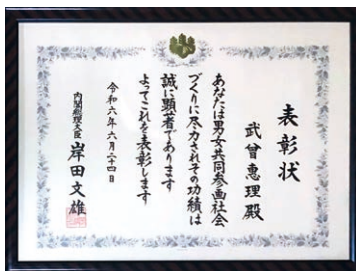 表彰状
武曾惠理殿
あなたは男女共同参画社会
づくりに尽力されその功績は
誠に顕著であります
よってこれを表彰します
令和六年六月二十四日
内閣総理大臣 岸田文雄